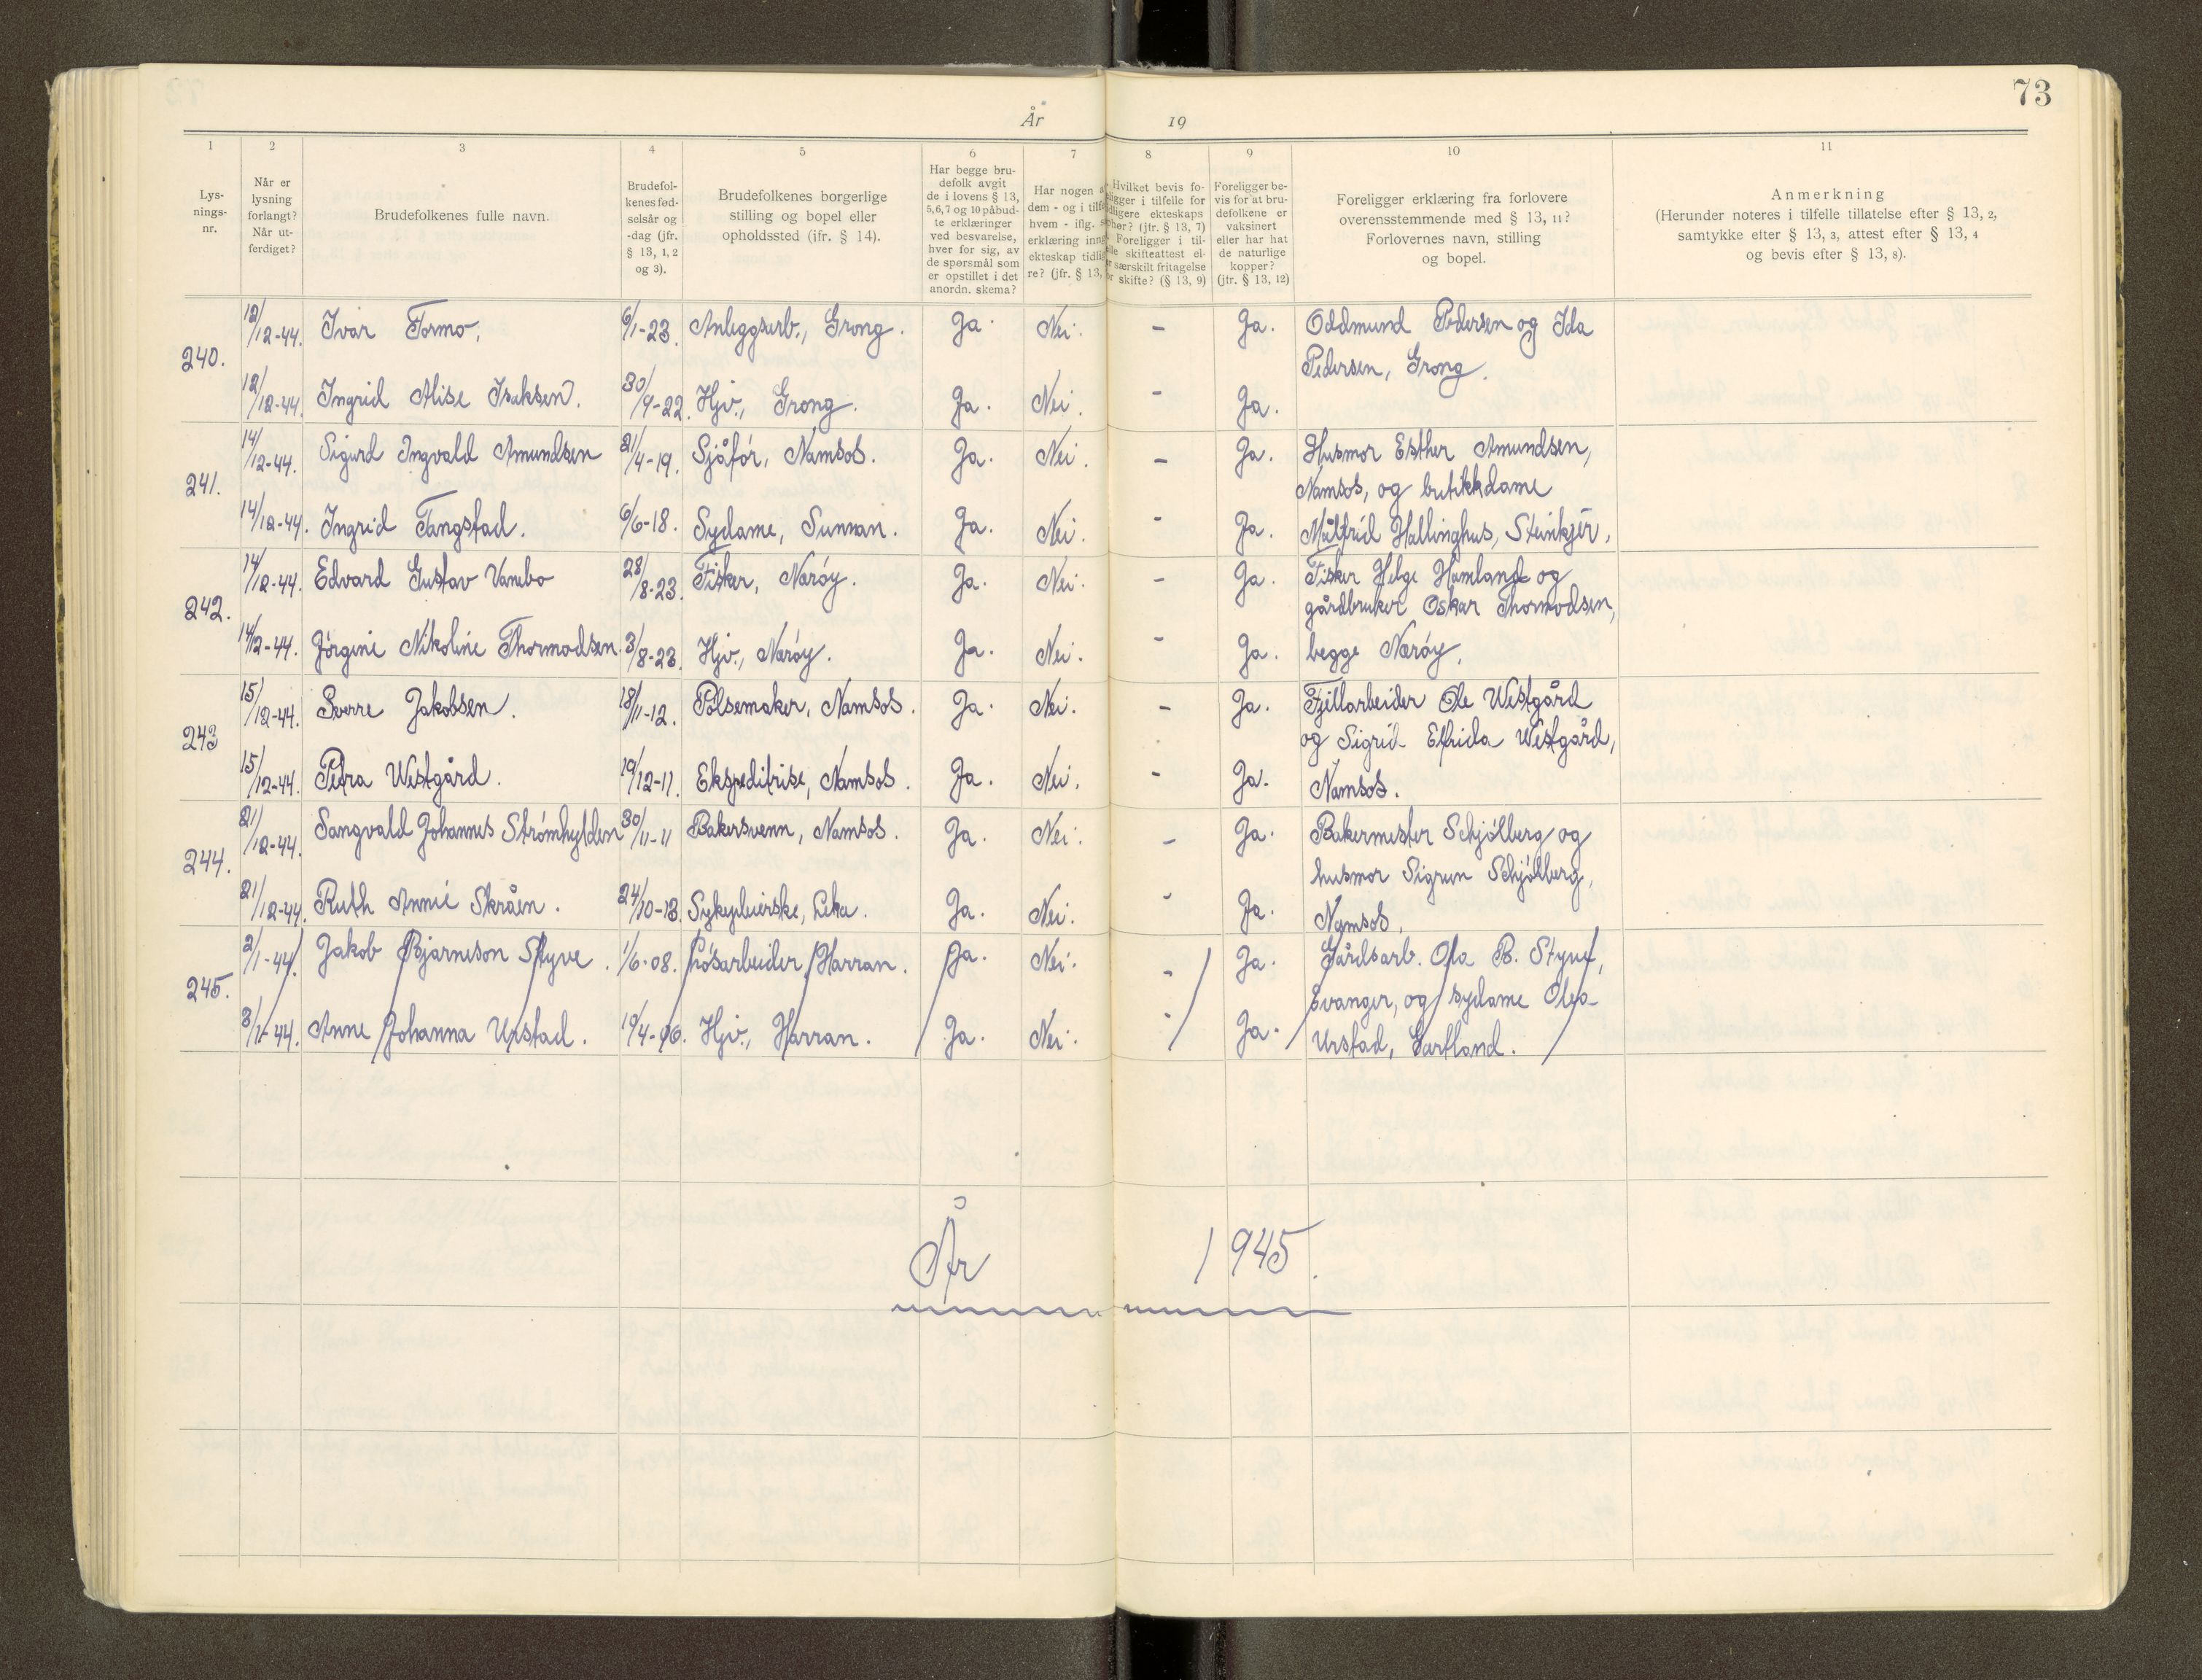 73
År 19
1 2 3 4 5 6 7 8 9 10 11
Lys-
nings-
nr.
Når er
lysning
forlangt?
Når ut-
ferdiget?
Brudefolkenes fulle navn.
Brudefol-
kenes fød-
selsår og
-dag (jfr.
§ 13, 1, 2
og 3).
Brudefolkenes borgerlige
stilling og bopel eller
opholdssted (ifr. § 14).
Har begge bru-
defolk avgit
de i lovens § 13,
5,6,7 og 10 påbud-
te erklæringer
ved besvarelse,
hver for sig, av
de spørsmål som
er opstillet i det
anordn. skema?
Har nogen a
dem - og i tilfe
hvem - iflg.
erklæring inng
ekteskap tidlig
re? (jfr. § 13,
Hvilket bevis fo-
ligger i tilfelle for
dligere ekteskaps
ophør? (jfr. § 13, 7)
Foreligger i til-
elle skifteattest el-
er særskilt fritagelse
or skifte? (§ 13, 9)
Foreligger be-
vis for at bru-
defolkene er
vaksinert
eller har hat
de naturlige
kopper?
(jfr. § 13, 12)
Foreligger erklæring fra forlovere
overensstemmende med § 13, 11?
Forlovernes navn, stilling
og bopel.
Anmerkning
(Herunder noteres i tilfelle tillatelse efter § 13, 2,
samtykke efter § 13, 3, attest efter § 13, 4
og bevis efter § 13, 8).
240.
12/12-44. Ivar Formo. 6/1-23. Anleggsarb., Grong. Ja. Nei. - Ja. Oddmund Pedersen og Ida
Pedersen, Grong.
12/12-44. Ingrid Alise Isaksen. 30/9-22. Hjv., Grong. Ja. Nei. - Ja.
241.
14/12-44. Sigurd Ingvald Amundsen 21/4-19. Sjåfør, Namsos. Ja. Nei. - Ja. Husmor Esther Amundsen,
Namsos, og butikkdame
14/12-44. Ingrid Tangstad. 6/6-18. Sydame, Sunnan. Ja. Nei. - Ja. Målfrid Hallinghus, Steinkjer,
242.
14/12-44. Edvard Gustav Vanebo 28/8-23. Fisker, Nærøy. Ja. Nei. - Ja. Fisker Helge Hamland og
gårdbruker Oskar Thormodsen,
14/12-44. Jørgine Nikoline Thormodsen. 3/8-23. Hjv., Nærøy. Ja. Nei. - Ja. begge Nærøy.
243
15/12-44. Sverre Jakobsen. 18/11-12. Pølsemaker, Namsos. Ja. Nei. - Ja. Fjellarbeider Ole Westgård
og Sigrid Elfrida Westgård,
15/12-44. Petra Westgård. 19/12-11. Ekspeditrise, Namsos. Ja. Nei. - Ja. Namsos.
244.
21/12-44. Sangvald Johannes Strømhylden 30/11-11 Bakersvenn, Namsos. Ja. Nei. - Ja. Bakermester Schjølberg og
husmor Sigrun Schjølberg,
21/12-44. Ruth Annie Skråen. 24/10-13. Sykepleierske, Leka. Ja. Nei. - Ja. Namsos.
245.
2/1-44. Jakob Bjarneson Styve. 1/6-08. Prøsarbeider, Harran. Ja. Nei. - Ja. Gårdsarb. Ola B. Styve,
Evanger, og sydame Olea
3/1-44. Anne Johanna Urstad. 10/4-06. Hjv., Harran. Ja. Nei. - Ja. Urstad, Gartland.
År 1945.